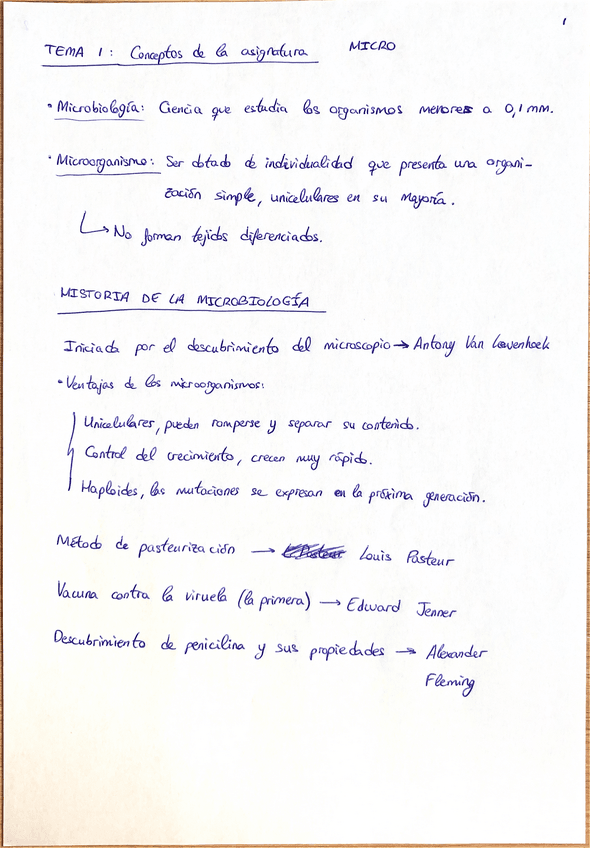 1
TEMA 1: Conceptos de la asignatura MICRO
• Microbiología: Ciencia que estudia los organismos menores a 0,1 mm.
• Microorganismo: Ser dotado de individualidad que presenta una organi-
zación simple, unicelulares en su mayoría.
↳ No forman tejidos diferenciados.
HISTORIA DE LA MICROBIOLOGÍA
Iniciada por el descubrimiento del microscopio → Antony Van Lewenhoek
• Ventajas de los microorganismos:
Unicelulares, pueden romperse y separar su contenido.
Control del crecimiento, crecen muy rápido.
Haploides, las mutaciones se expresan en la próxima generación.
Método de pasteurización → Louis Pasteur
Vacuna contra la viruela (la primera) → Edward Jenner
Descubrimiento de penicilina y sus propiedades → Alexander
Fleming